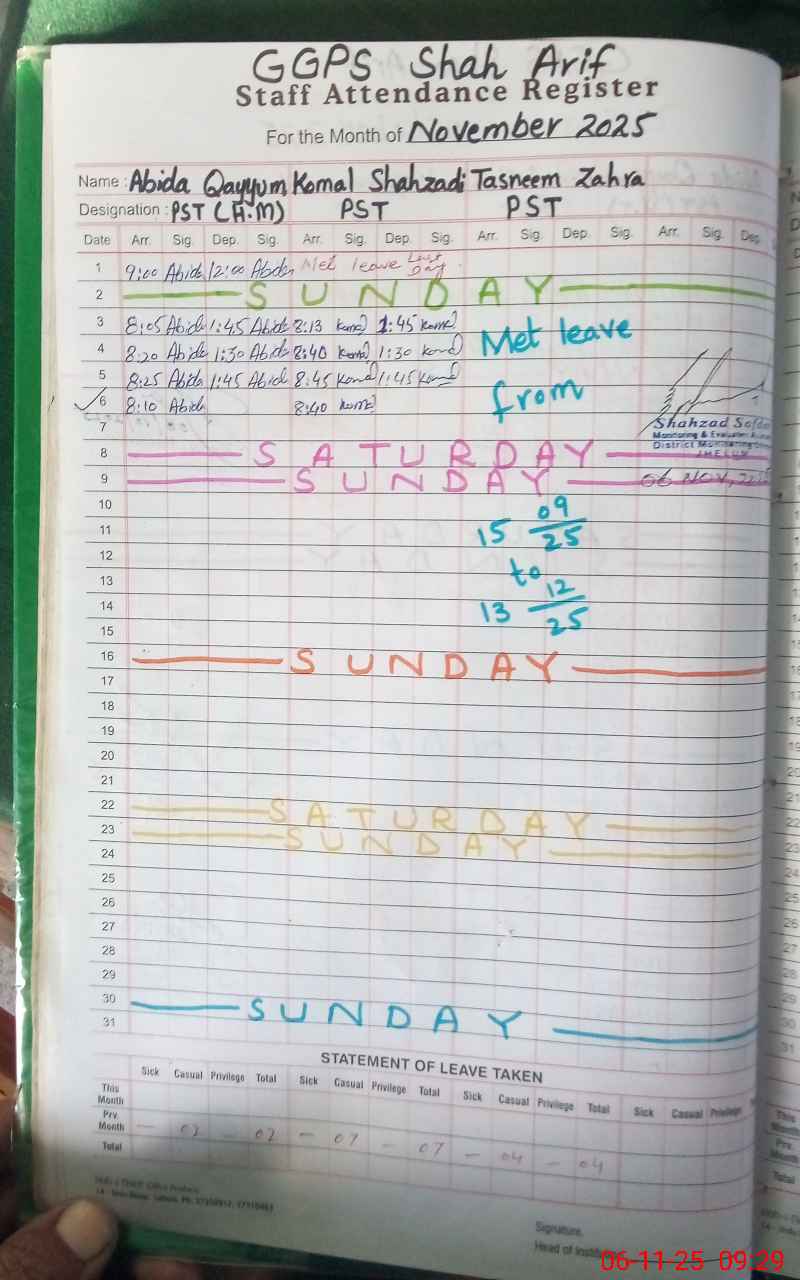 GGPS Shah Arif
Staff Attendance Register
For the Month of November 2025
Name : Abida Qayyum Komal Shahzadi Tasneem Zahra
Designation : PST (H.M) PST PST
Date Arr. Sig. Dep. Sig. Arr. Sig. Dep. Sig. Arr. Sig. Dep. Sig. Arr. Sig. Dep.
1 9:00 Abida 12:00 Abida Met leave Last Day
2 SUNDAY
3 8:05 Abida 1:45 Abida 8:13 Komal 1:45 Komal
Met leave
4 8:20 Abida 1:30 Abida 8:40 Komal 1:30 Komal
5 8:25 Abida 1:45 Abida 8:45 Komal 1:45 Komal
from
6 8:10 Abida 8:40 Komal
7
Shahzad Safdar
Monitoring & Evaluation
District Monitoring
JHELUM
8 SATURDAY
9 SUNDAY
06 NOV, 2025
10
09
11 15 25
12
to
13
12
14 13 25
15
16 SUNDAY
17
18
19
20
21
22 SATURDAY
23 SUNDAY
24
25
26
27
28
29
30 SUNDAY
31
STATEMENT OF LEAVE TAKEN
Sick Casual Privilege Total Sick Casual Privilege Total Sick Casual Privilege Total Sick Casual Privilege
This Month
Prv. Month — 02 — 02 — 07 — 07 — 04 — 04
Total
Signature.
Head of
06-11-25 09:29